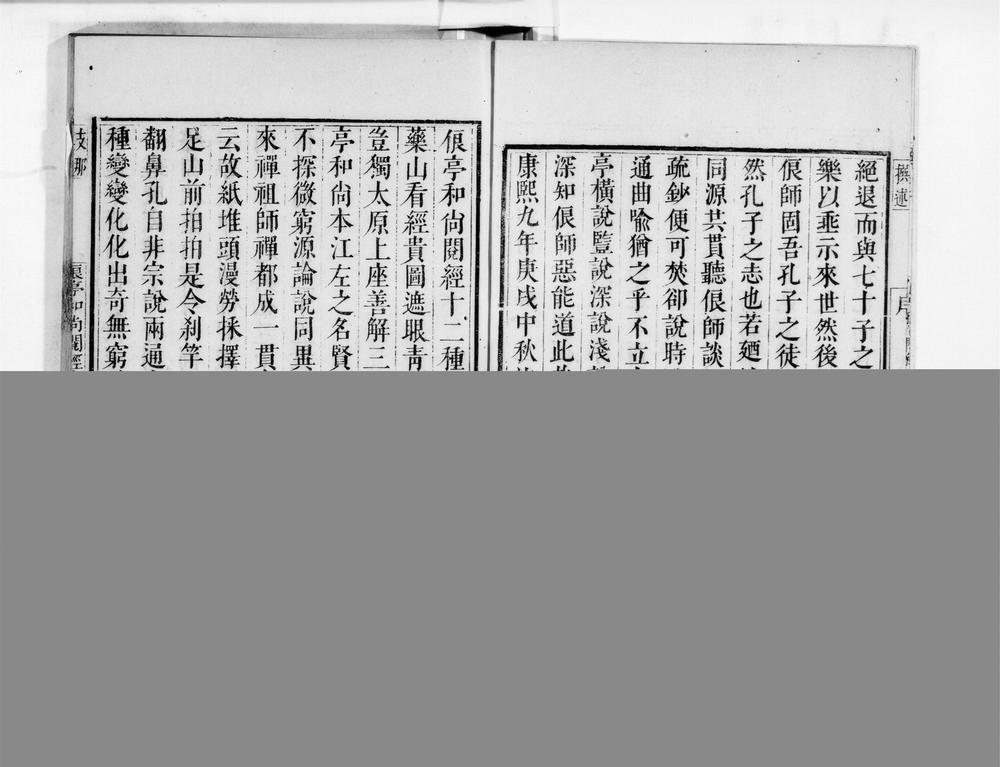 撰述
序
絕退而與七十子之
樂以垂示來世然後
俍師固吾孔子之徒
然孔子之志也若廼
同源共貫聽俍師談
疏鈔便可焚卻說時
通曲喻猶之乎不立
亭橫說豎說深說淺
深知俍師惡能道此
康熙九年庚戌中秋
俍亭和尚閱經十二種
藥山看經貴圖遮眼青
豈獨太原上座善解三
亭和尚本江左之名賢
不探微窮源論說同異
來禪祖師禪都成一貫
云故紙堆頭漫勞揀擇
足山前拍拍是令剎竿
翻鼻孔自非宗說兩通
種變變化化出奇無窮
支那
俍亭和尚閱經